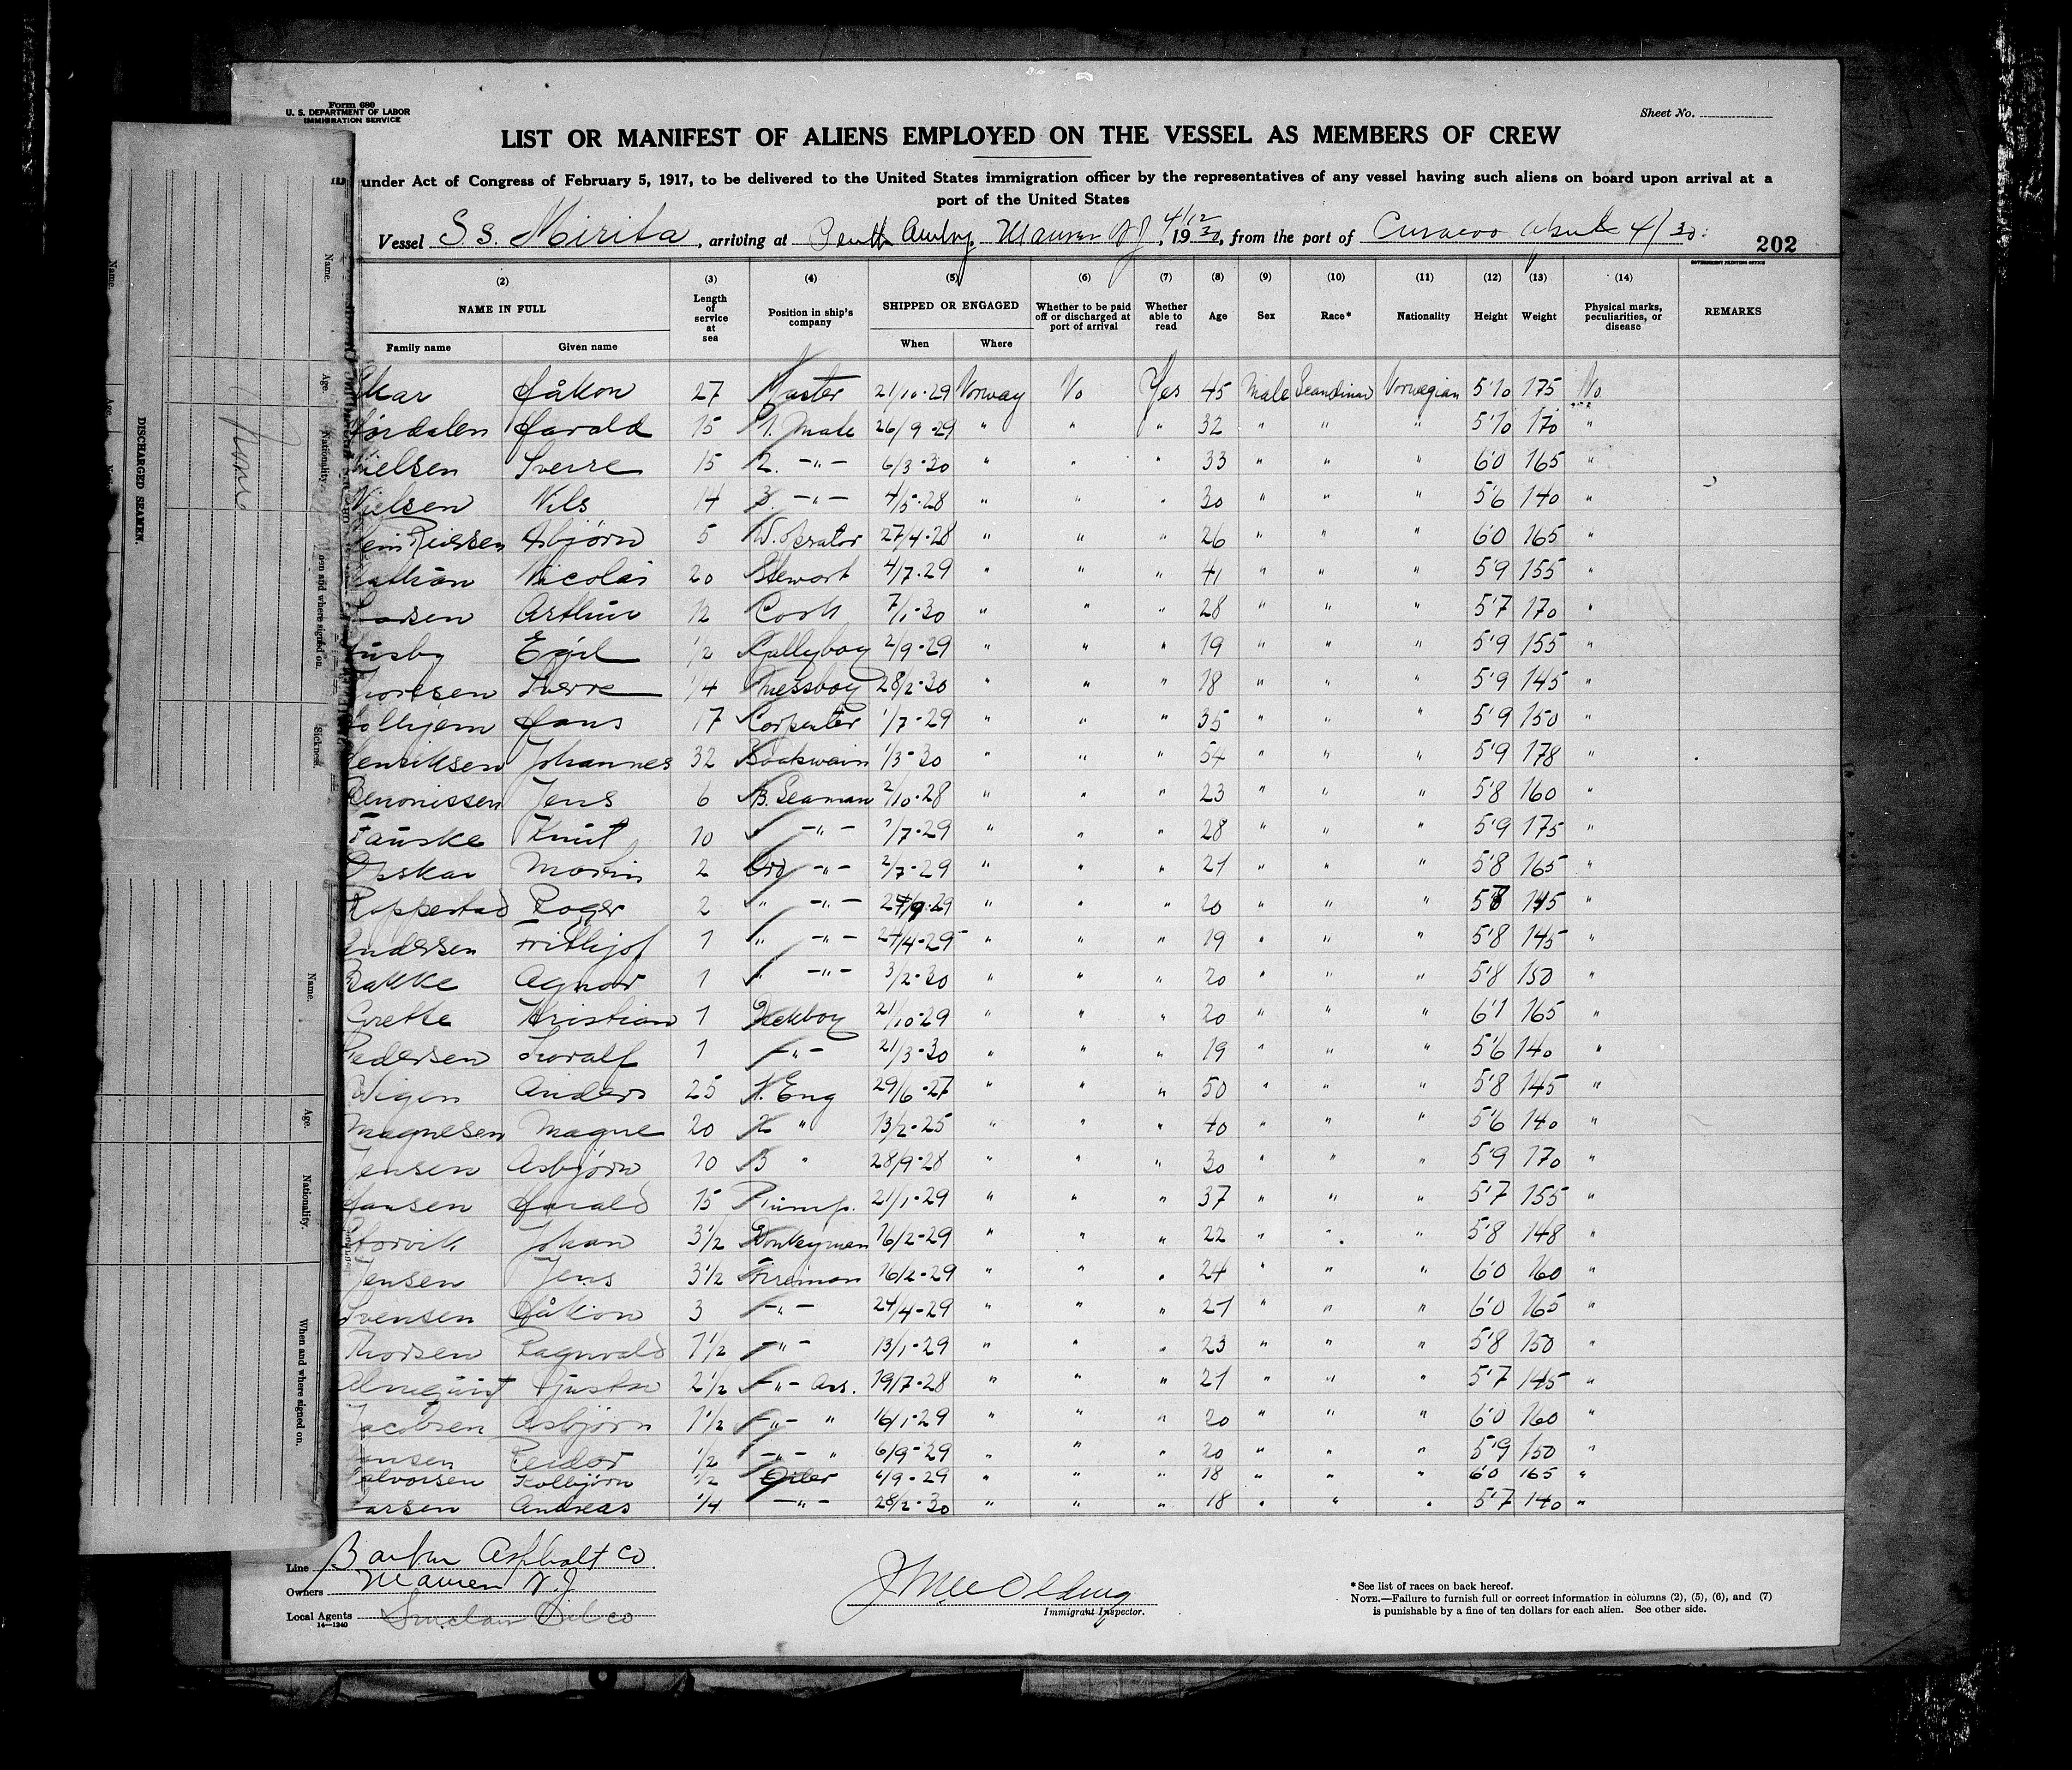 Form 680
U. S. DEPARTMENT OF LABOR
IMMIGRATION SERVICE
Sheet No.
LIST OR MANIFEST OF ALIENS EMPLOYED ON THE VESSEL AS MEMBERS OF CREW
under Act of Congress of February 5, 1917, to be delivered to the United States immigration officer by the representatives of any vessel having such aliens on board upon arrival at a
port of the United States
Vessel S s. Mirita, arriving at Perth Amboy. Maurer N J, 4/12 1930, from the port of Curacao 4/30.
202
GOVERNMENT PRINTING OFFICE
(2) (3) (4) (5) (6) (7) (8) (9) (10) (11) (12) (13) (14)
NAME IN FULL Length of service at sea Position in ship's company SHIPPED OR ENGAGED Whether to be paid off or discharged at port of arrival Whether able to read Age Sex Race* Nationality Height Weight Physical marks, peculiarities, or disease REMARKS
Family name Given name When Where
Håkon 27 Master 21/10-29 Norway No Yes 45 Male Scandinav Norwegian 5'10 175 No
Harald 15 1. Mate 26/9-29 " " " 32 " " " 5'10 170 "
Nielsen Sverre 15 2. -"- 6/3-30 " " " 33 " " " 6'0 165 "
Nielsen Nils 14 3. -"- 4/5-28 " " " 30 " " " 5'6 140 "
Asbjørn 5 W. Oprator 27/4-28 " " " 26 " " " 6'0 165 "
Nicolai 20 Stewart 4/7-29 " " " 41 " " " 5'9 155 "
Arthur 12 Cook 7/1-30 " " " 28 " " " 5'7 170 "
Egil 1/2 Gallyboy 2/9-29 " " " 19 " " " 5'9 155 "
Sverre 1/4 Messboy 28/2-30 " " " 18 " " " 5'9 145 "
Hans 17 Carpenter 1/7-29 " " " 35 " " " 5'9 150 "
Henriksen Johannes 32 Boatswain 1/3-30 " " " 54 " " " 5'9 178 "
Benonissen Jens 6 B. Seaman 2/10-28 " " " 23 " " " 5'8 160 "
Fauske Knut 10 -"- 1/7-29 " " " 28 " " " 5'9 175 "
Opskar Martin 2 Ord -"- 2/7-29 " " " 21 " " " 5'8 165 "
Roppestad Roger 2 " -"- " " " 20 " " " 145 "
Andersen Frithjof 1 " -"- 24/4-29 " " " 19 " " " 5'8 145 "
Bakke Agnar 1 " -"- 3/2-30 " " " 20 " " " 5'8 150 "
Grette Kristian 1 Deckboy 21/10-29 " " " 20 " " " 6'1 165 "
Pedersen Toralf 1 -"- 21/3-30 " " " 19 " " " 5'6 140 "
Wigen Anders 25 1. Eng 29/6-27 " " 50 " " " 5'8 145 "
Magnesen Magne 20 2 " 13/2-25 " " " 40 " " " 5'6 140 "
Jensen Asbjørn 10 3 " 28/9-28 " " " 30 " " " 5'9 170 "
Hansen Harald 15 Pump. 21/1-29 " " " 37 " " " 5'7 155 "
Storvik Johan 3 1/2 Donkeyman 16/2-29 " " " 22 " " " 5'8 148 "
Jensen Jens 3 1/2 Fireman 16/2-29 " " " 24 " " " 6'0 160 "
Svensen Håkon 3 -"- 24/4-29 " " " 21 " " " 6'0 165 "
Thorsen Ragnvald 1 1/2 -"- 13/1-29 " " " 23 " " " 5'8 150 "
Almquist Gustav 2 1/2 -"- Ass. 19/7-28 " " " 21 " " " 5'7 145 "
Jacobsen Asbjørn 1 1/2 -"- " 16/1-29 " " " 20 " " " 6'0 160 "
Hansen Reidar 1/2 -"- " 6/9-29 " " " 20 " " " 5'9 150 "
Halvorsen Kolbjørn 1/2 Oiler 6/9-29 " " " 18 " " " 6'0 165 "
Larsen Andreas 1/4 -"- 28/2-30 " " " 18 " " " 5'7 140 "
Line Barber Asphalt Co
Owners Maurer N.J.
Local Agents Sinclair Oil co
14—1240
Immigrant Inspector.
*See list of races on back hereof.
NOTE.—Failure to furnish full or correct information in columns (2), (5), (6), and (7)
is punishable by a fine of ten dollars for each alien. See other side.
DISCHARGED SEAMEN.
None
Name.
Age.
Nationality.
When and where signed on.
Sickness.
Name.
Age.
Nationality.
When and where signed on.